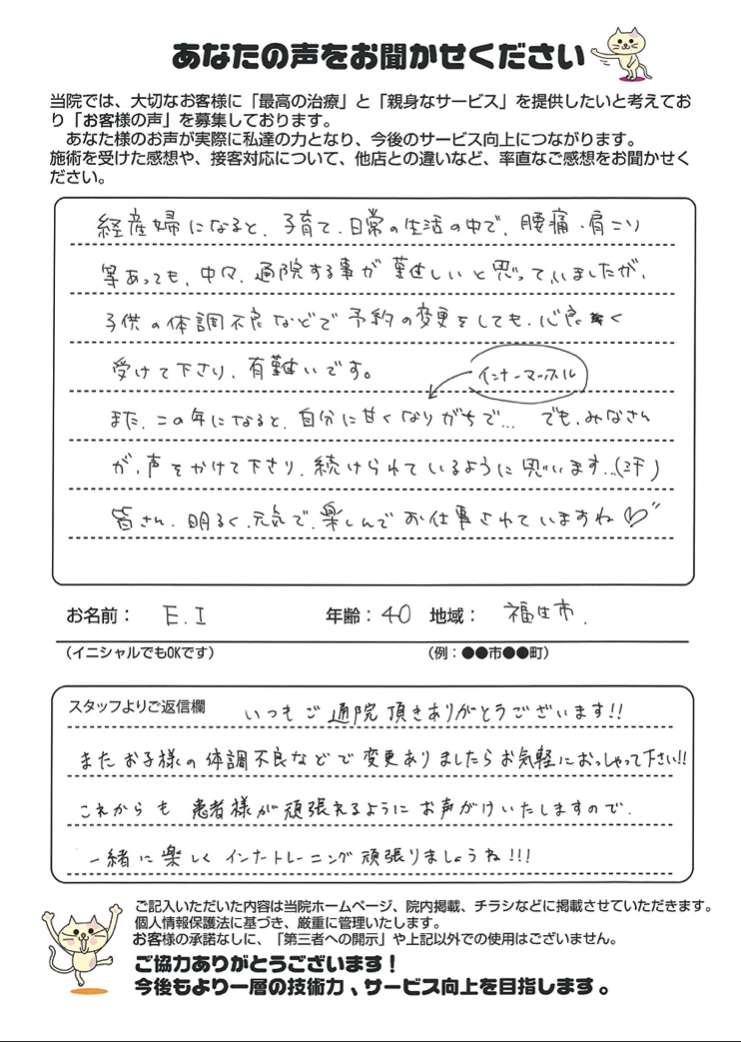 あなたの声をお聞かせください
当院では、大切なお客様に「最高の治療」と「親身なサービス」を提供したいと考えてお
り「お客様の声」を募集しております。
あなた様のお声が実際に私達の力となり、今後のサービス向上につながります。
施術を受けた感想や、接客対応について、他店との違いなど、率直なご感想をお聞かせく
ださい。
経産婦になると、子育て、日常の生活の中で、腰痛、肩こり
等あっても、中々、通院する事が難しいと思っていましたが、
子供の体調不良などで予約の変更をしても、心良く
受けて下さり、有難いです。
インナーマッスル
また、この年になると、自分に甘くなりがちで… でも、みなさん
が、声をかけて下さり、続けられているように思います…(汗)
皆さん、明るく、元気で、楽しんでお仕事されていますね♡
お名前： E.I 年齢：40 地域： 福生市.
（イニシャルでもOKです） （例：●●市●●町）
スタッフよりご返信欄 いつもご通院頂きありがとうございます!!
またお子様の体調不良などで変更ありましたらお気軽におっしゃって下さい!!
これからも 患者様が頑張れるようにお声がけいたしますので.
一緒に楽しくインナートレーニング頑張りましょうね!!!
ご記入いただいた内容は当院ホームページ、院内掲載、チラシなどに掲載させていただきます。
個人情報保護法に基づき、厳重に管理いたします。
お客様の承諾なしに、「第三者への開示」や上記以外での使用はございません。
ご協力ありがとうございます！
今後もより一層の技術力、サービス向上を目指します。